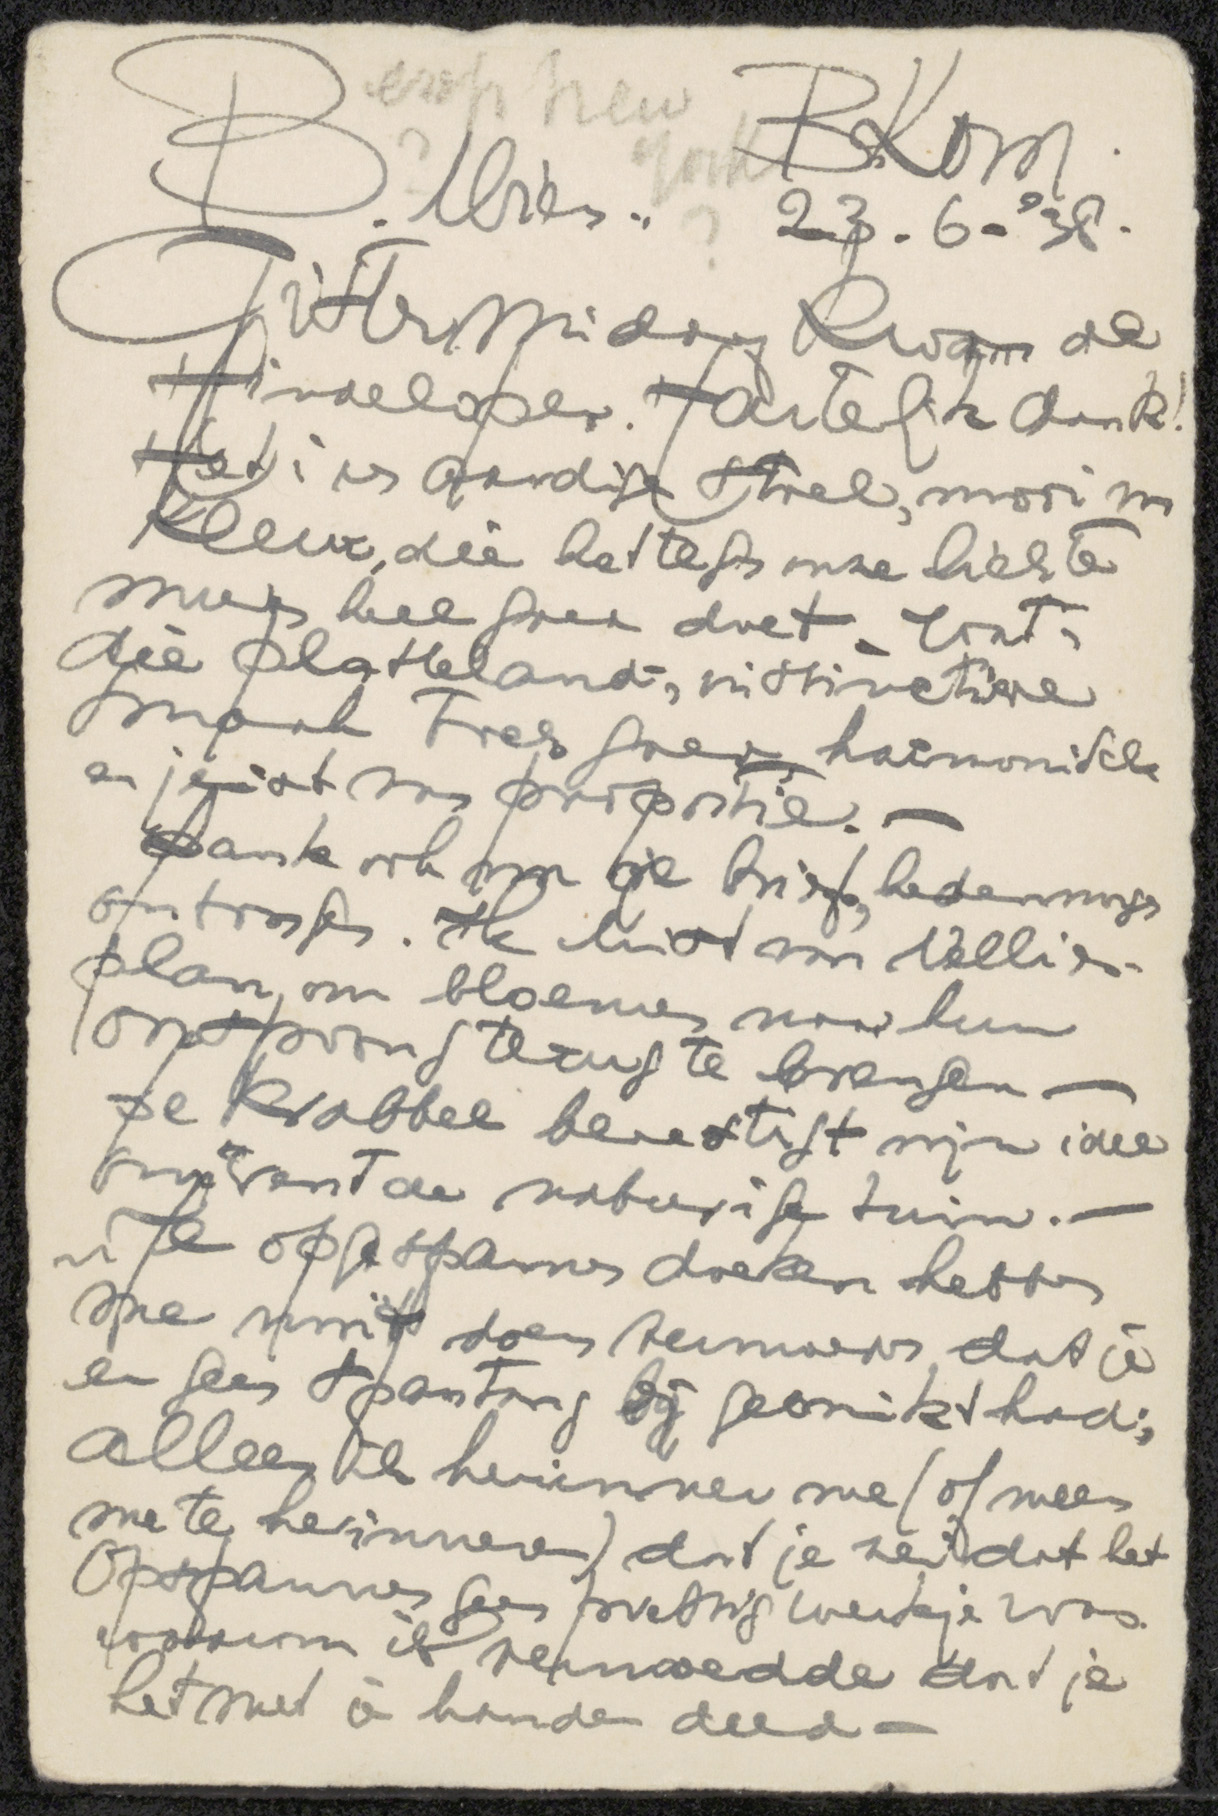 B. Wies..
BKom.
23.-6-'38.
Gister middag kwam de
Hindelooper. Hartelijk dank!
Het is aardige stoel, mooi van
kleur, die het tegen onze lichte
muur heel goed doet. Wat
die plattelands, instinctieve
smaak toch goed, harmonisch
en juist van proportie. —
Dank ook voor je brief, hedenmorgen
ontvangen. Ik wist van Wellies
plan, om bloemen naar hun
oorsprong terug te brengen —
De krabbel bevestigt mijn idee
omtrent de naburige tuin. —
Je opgespannen doeken hebben
me nooit doen vermoeden dat je
er geen spantang bij gebruikt had;
alleen ik herinner me (of meen
me te herinneren) dat je zei dat het
opspannen geen prettig werkje was.
waarom ik vermoedde dat je
het met je handen deed —